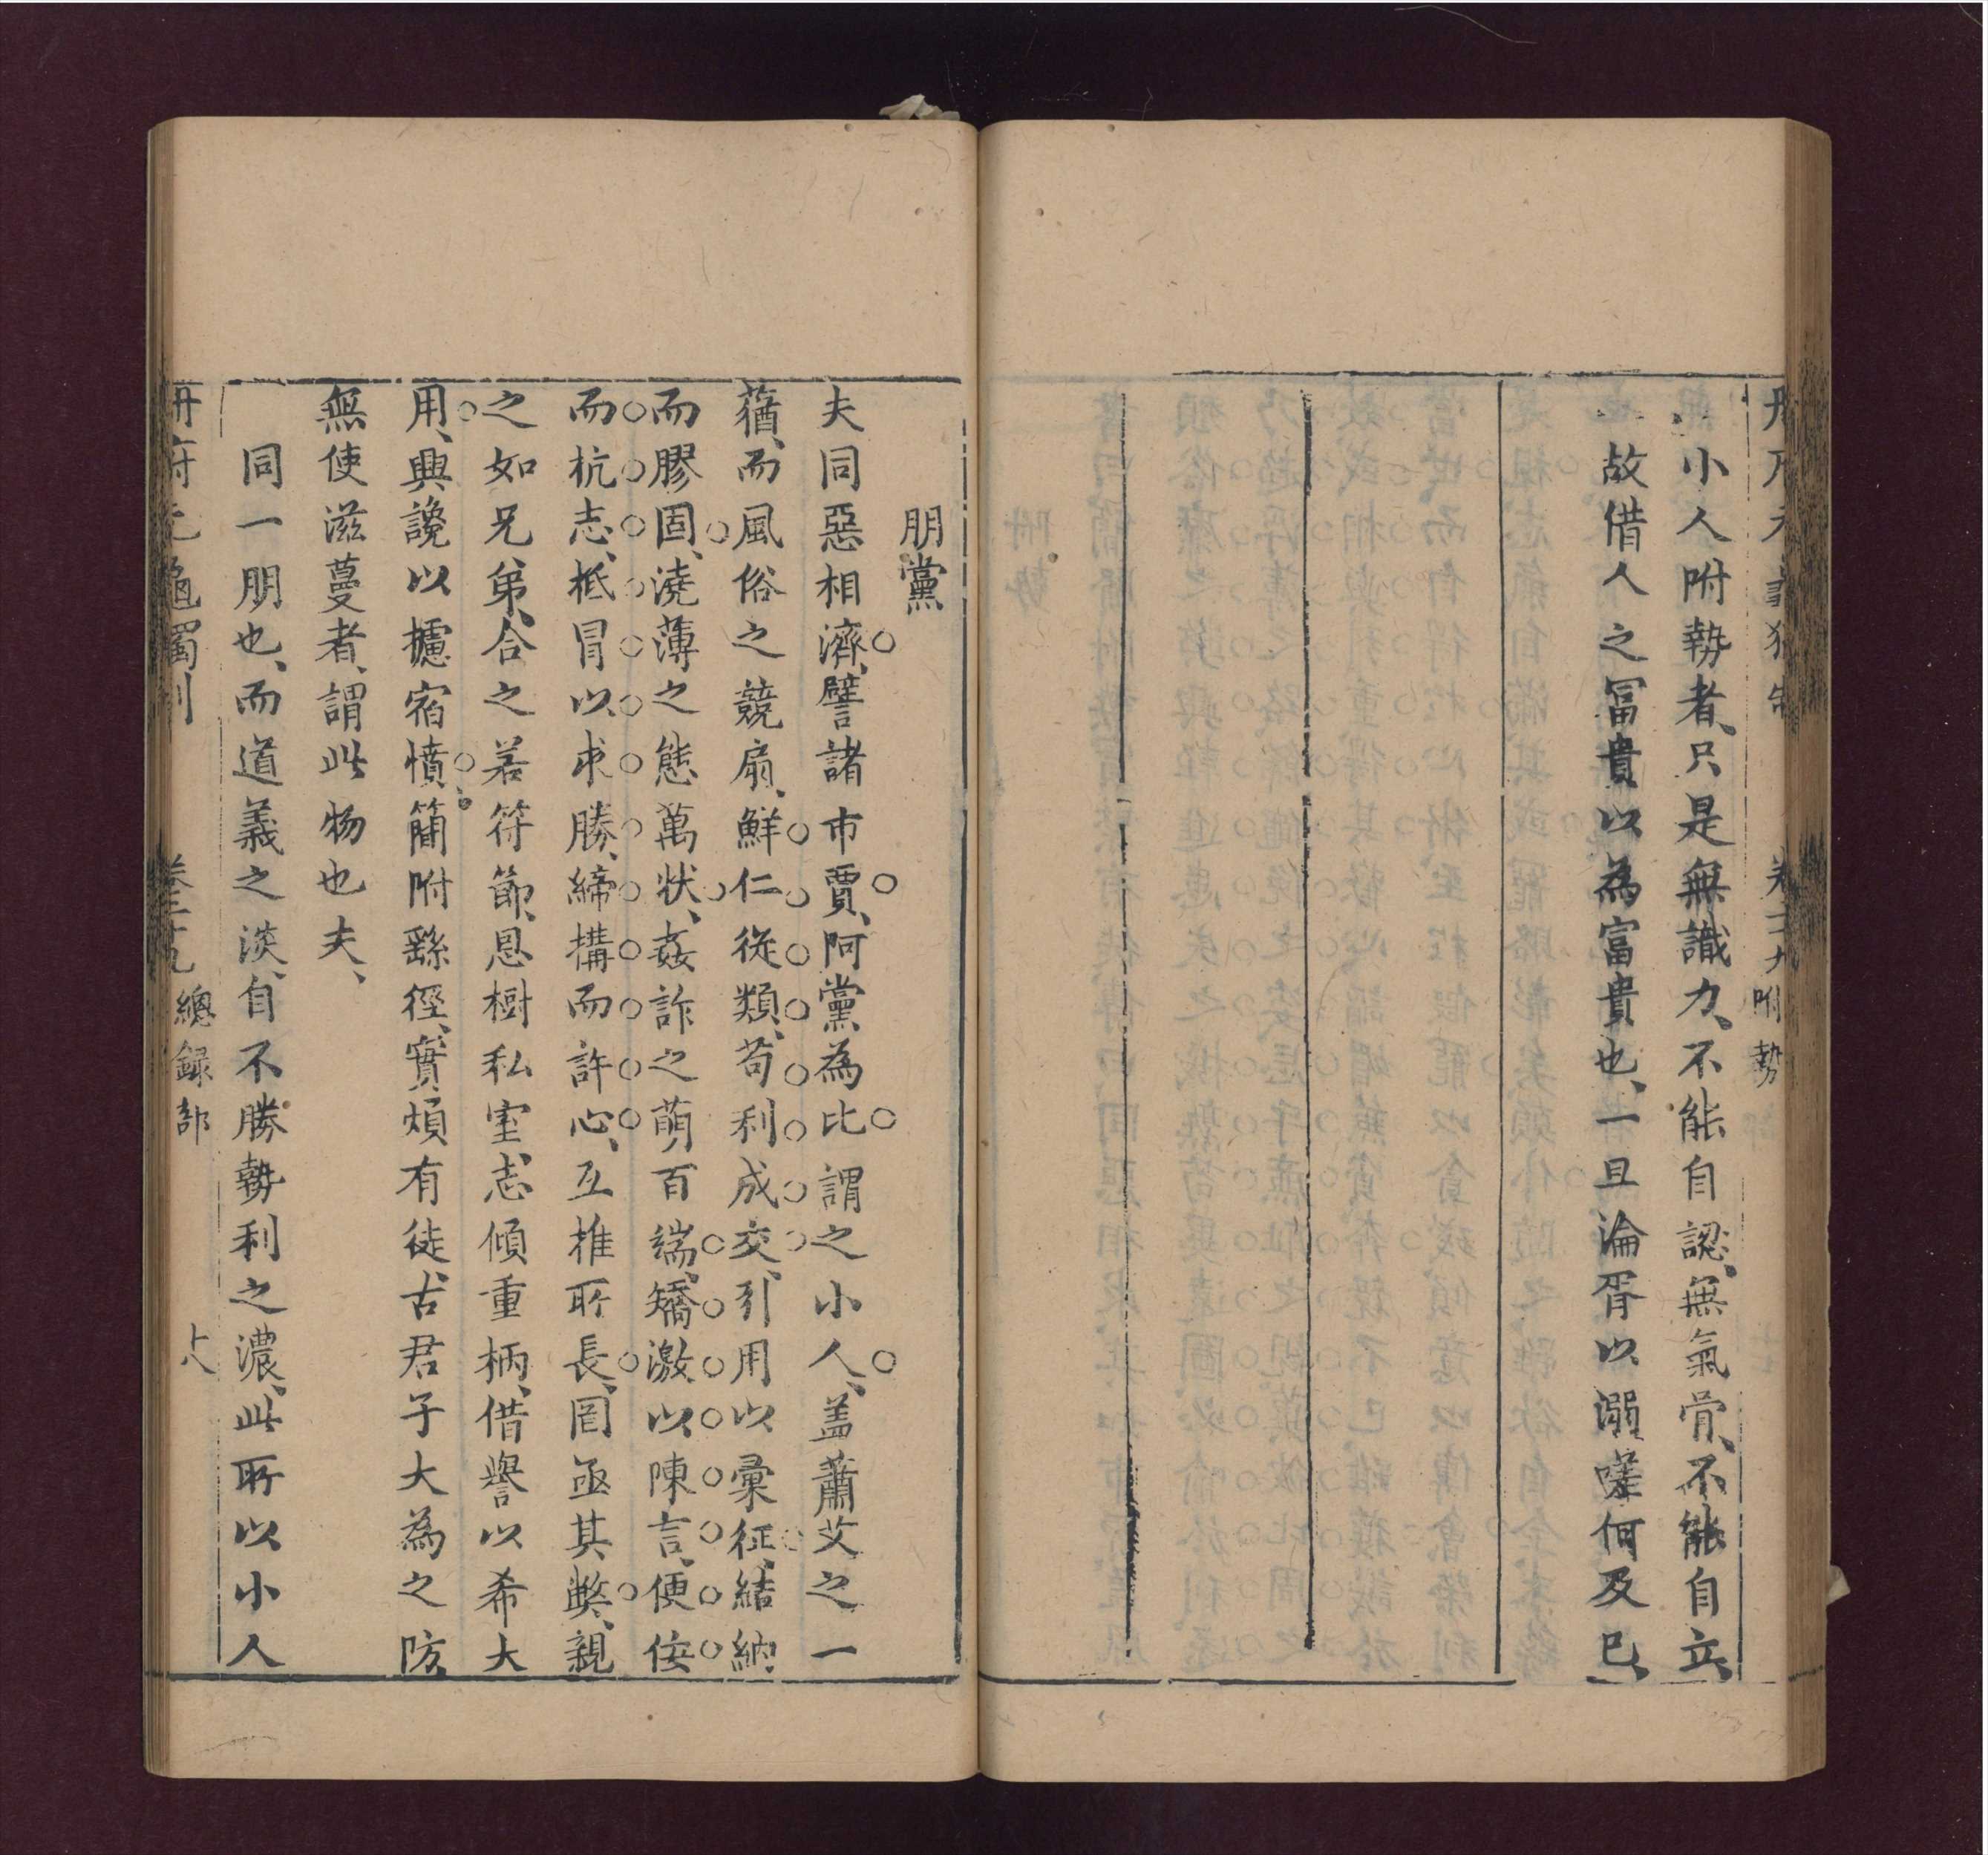 小人附勢者、只是無識力、不能自認、無氣骨、不能自立、
故借人之冨貴以為富貴也、一旦淪胥以溺嗟何及已、
附勢
朋黨
夫同惡相濟、譬諸市賈、阿黨為比謂之小人、盖蕭艾之一
蕕、而風俗之競扇、鮮仁從類、苟利成交、引用以彙征、結納
而膠固、澆薄之態萬狀、姦詐之萌百端、矯激以陳言、便佞
而杭志、柢冒以求勝、締構而許心、互推所長、罔亟其獘、親
之如兄弟、合之若符節、恩樹私室、志傾重柄、借譽以希大
用、興讒以攄宿憤、簡附繇徑、實煩有徒、古君子大為之防、
無使滋蔓者、謂此物也夫、
同一朋也、而道義之淡、自不勝勢利之濃、此所以小人
冊府元龜獨制
卷二十九總録部